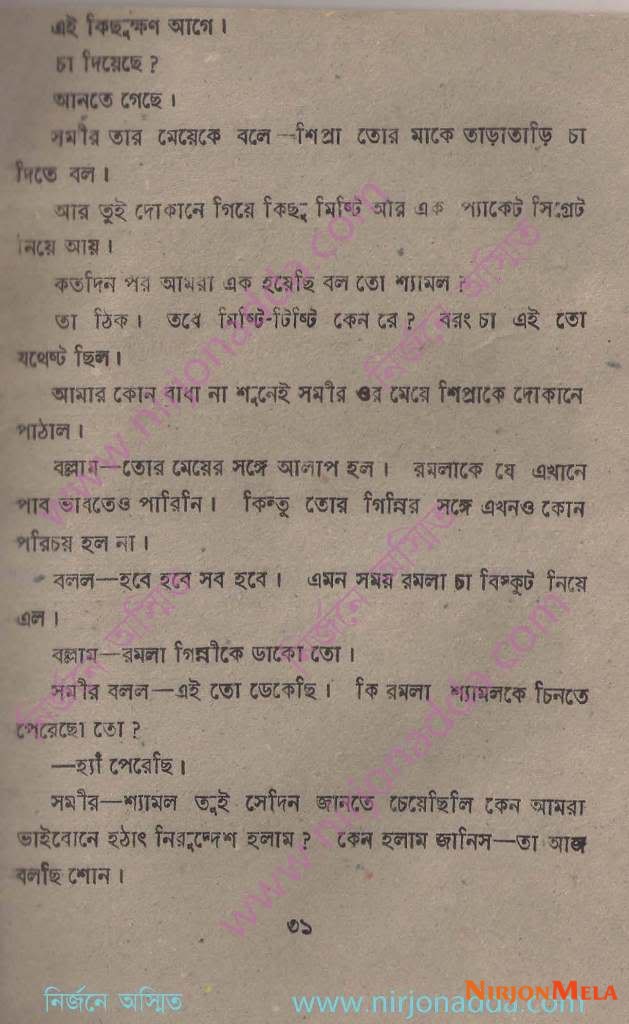 এই কিছুক্ষণ আগে।
চা দিয়েছে?
আনতে গেছে।
সমীর তার মেয়েকে বলে—শিপ্রা তোর মাকে তাড়াতাড়ি চা
দিতে বল।
আর তুই দোকানে গিয়ে কিছু মিষ্টি আর এক প্যাকেট সিগ্রেট
নিয়ে আয়।
কতদিন পর আমরা এক হয়েছি বল তো শ্যামল?
তা ঠিক। তবে মিষ্টি-টিষ্টি কেন রে? বরং চা এই তো
যথেষ্ট ছিল।
আমার কোন বাধা না শুনেই সমীর ওর মেয়ে শিপ্রাকে দোকানে
পাঠাল।
বল্লাম—তোর মেয়ের সঙ্গে আলাপ হল। রমলাকে যে এখানে
পাব ভাবতেও পারিনি। কিন্তু তোর গিন্নির সঙ্গে এখনও কোন
পরিচয় হল না।
বলল—হবে হবে সব হবে। এমন সময় রমলা চা বিস্কুট নিয়ে
এল।
বল্লাম—রমলা গিন্নীকে ডাকো তো।
সমীর বলল—এই তো ডেকেছি। কি রমলা শ্যামলকে চিনতে
পেরেছো তো?
—হ্যাঁ পেরেছি।
সমীর—শ্যামল তুই সেদিন জানতে চেয়েছিলি কেন আমরা
ভাইবোনে হঠাৎ নিরুদ্দেশ হলাম? কেন হলাম জানিস—তা আজ
বলছি শোন।
৩১
নির্জনে অস্মিত www.nirjonadda.com
NIRJONMELA
www.nirjonadda.com
নির্জনে অস্মিত
নির্জনে অস্মিত
নির্জনে অস্মিত
www.nirjonadda.com